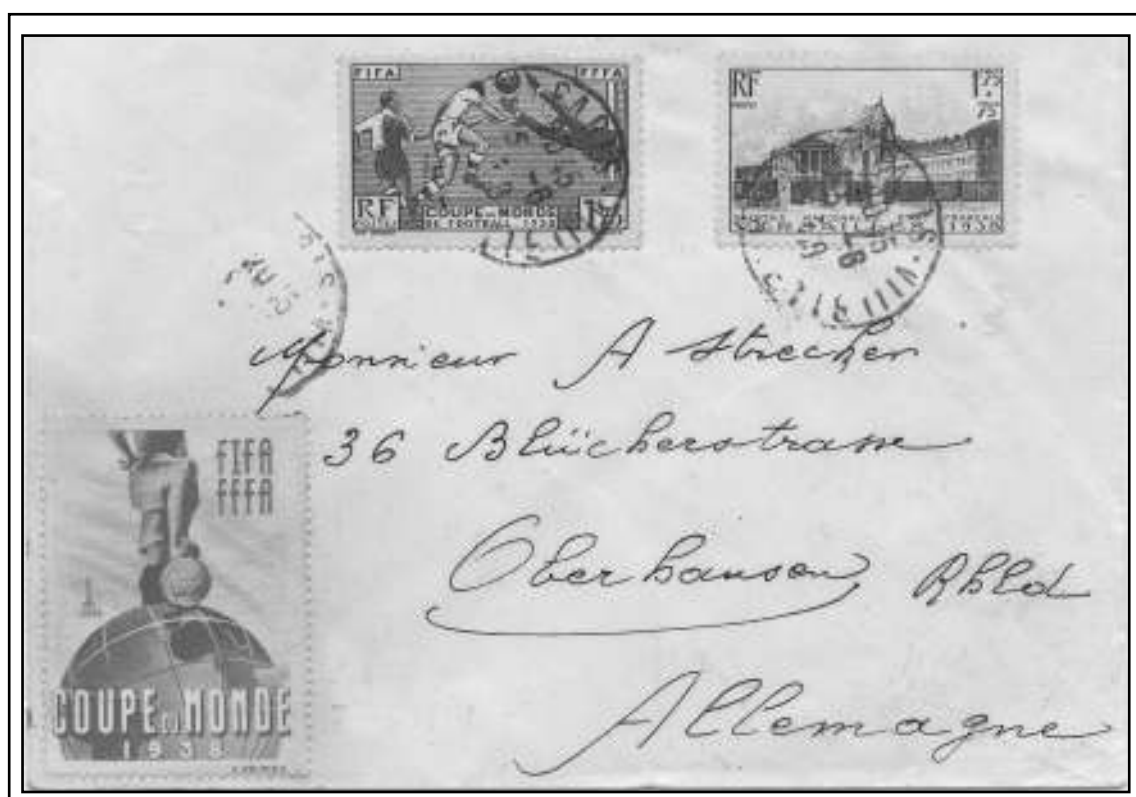 FIFA FFFA
RF
POSTES
COUPE DU MONDE
DE FOOTBALL 1938
RF
1F75
+
75c
VERSAILLES 1938
Monsieur A Strecker
36 Blücherstrasse
Oberhausen Rhld
Allemagne
FIFA
FFFA
COUPE DU MONDE
1938